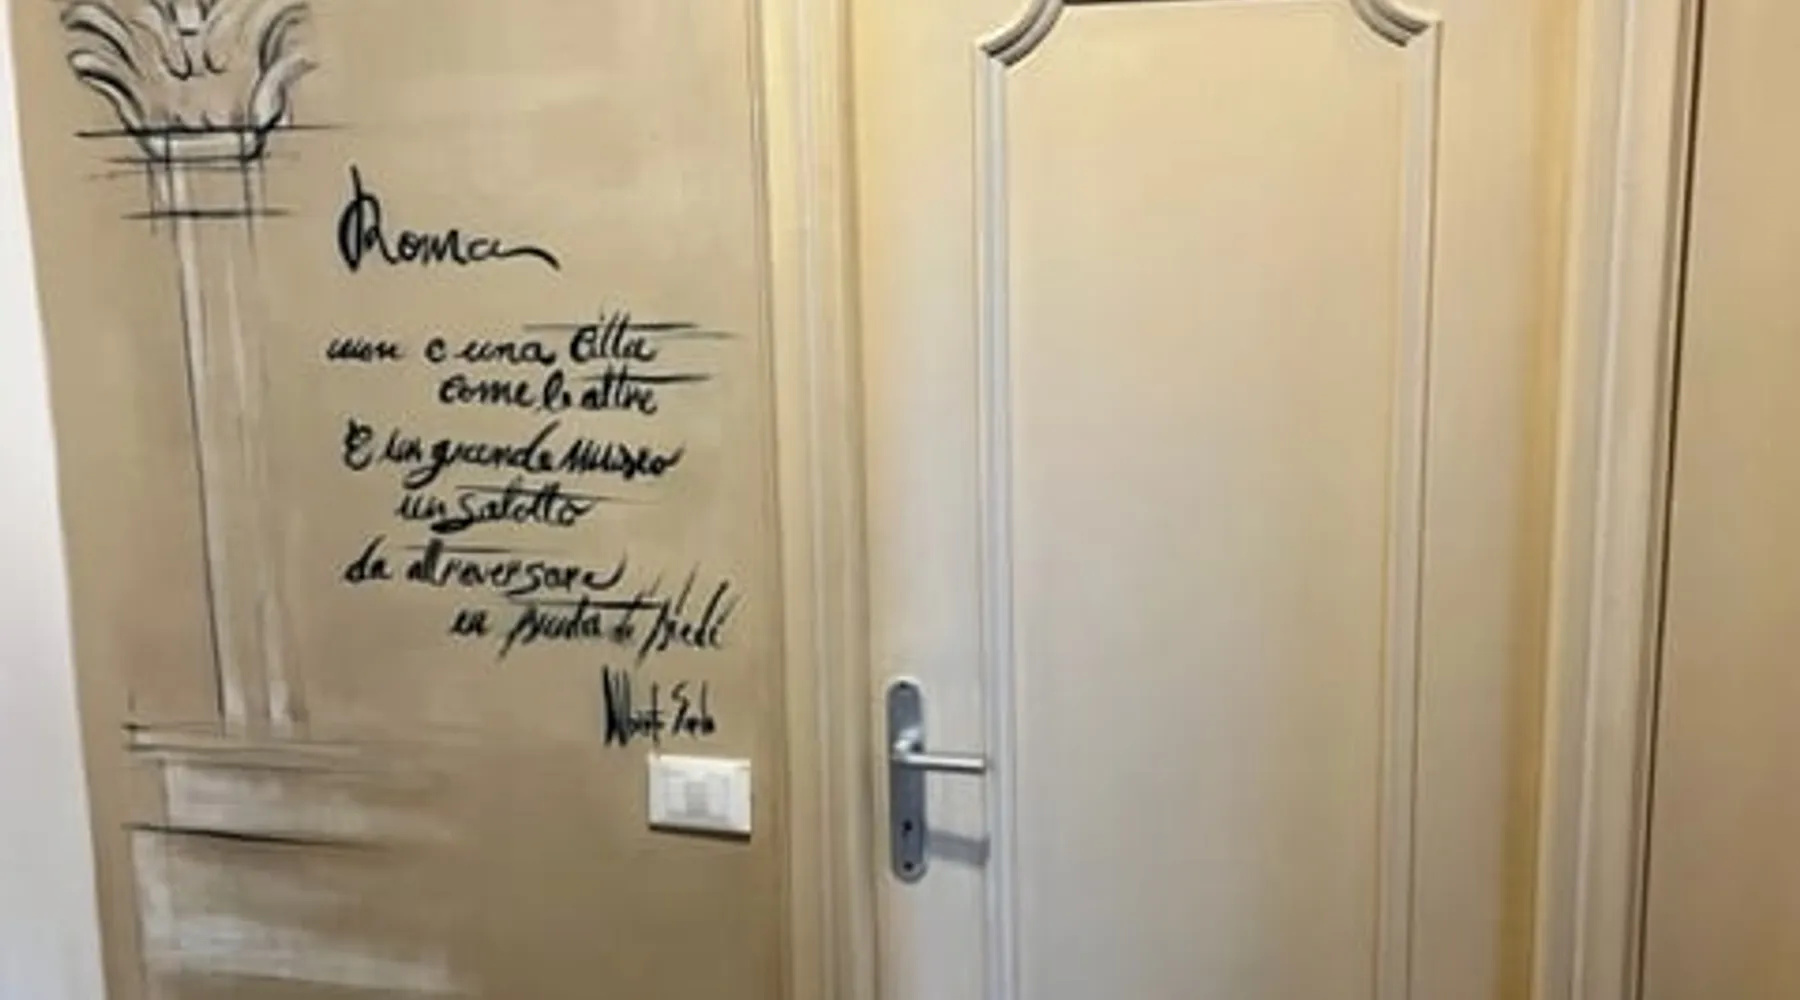 Roma
non e una citta
come le altre
E un grande museo
un salotto
da attraversare
in punta di piedi
Alberto Sordi